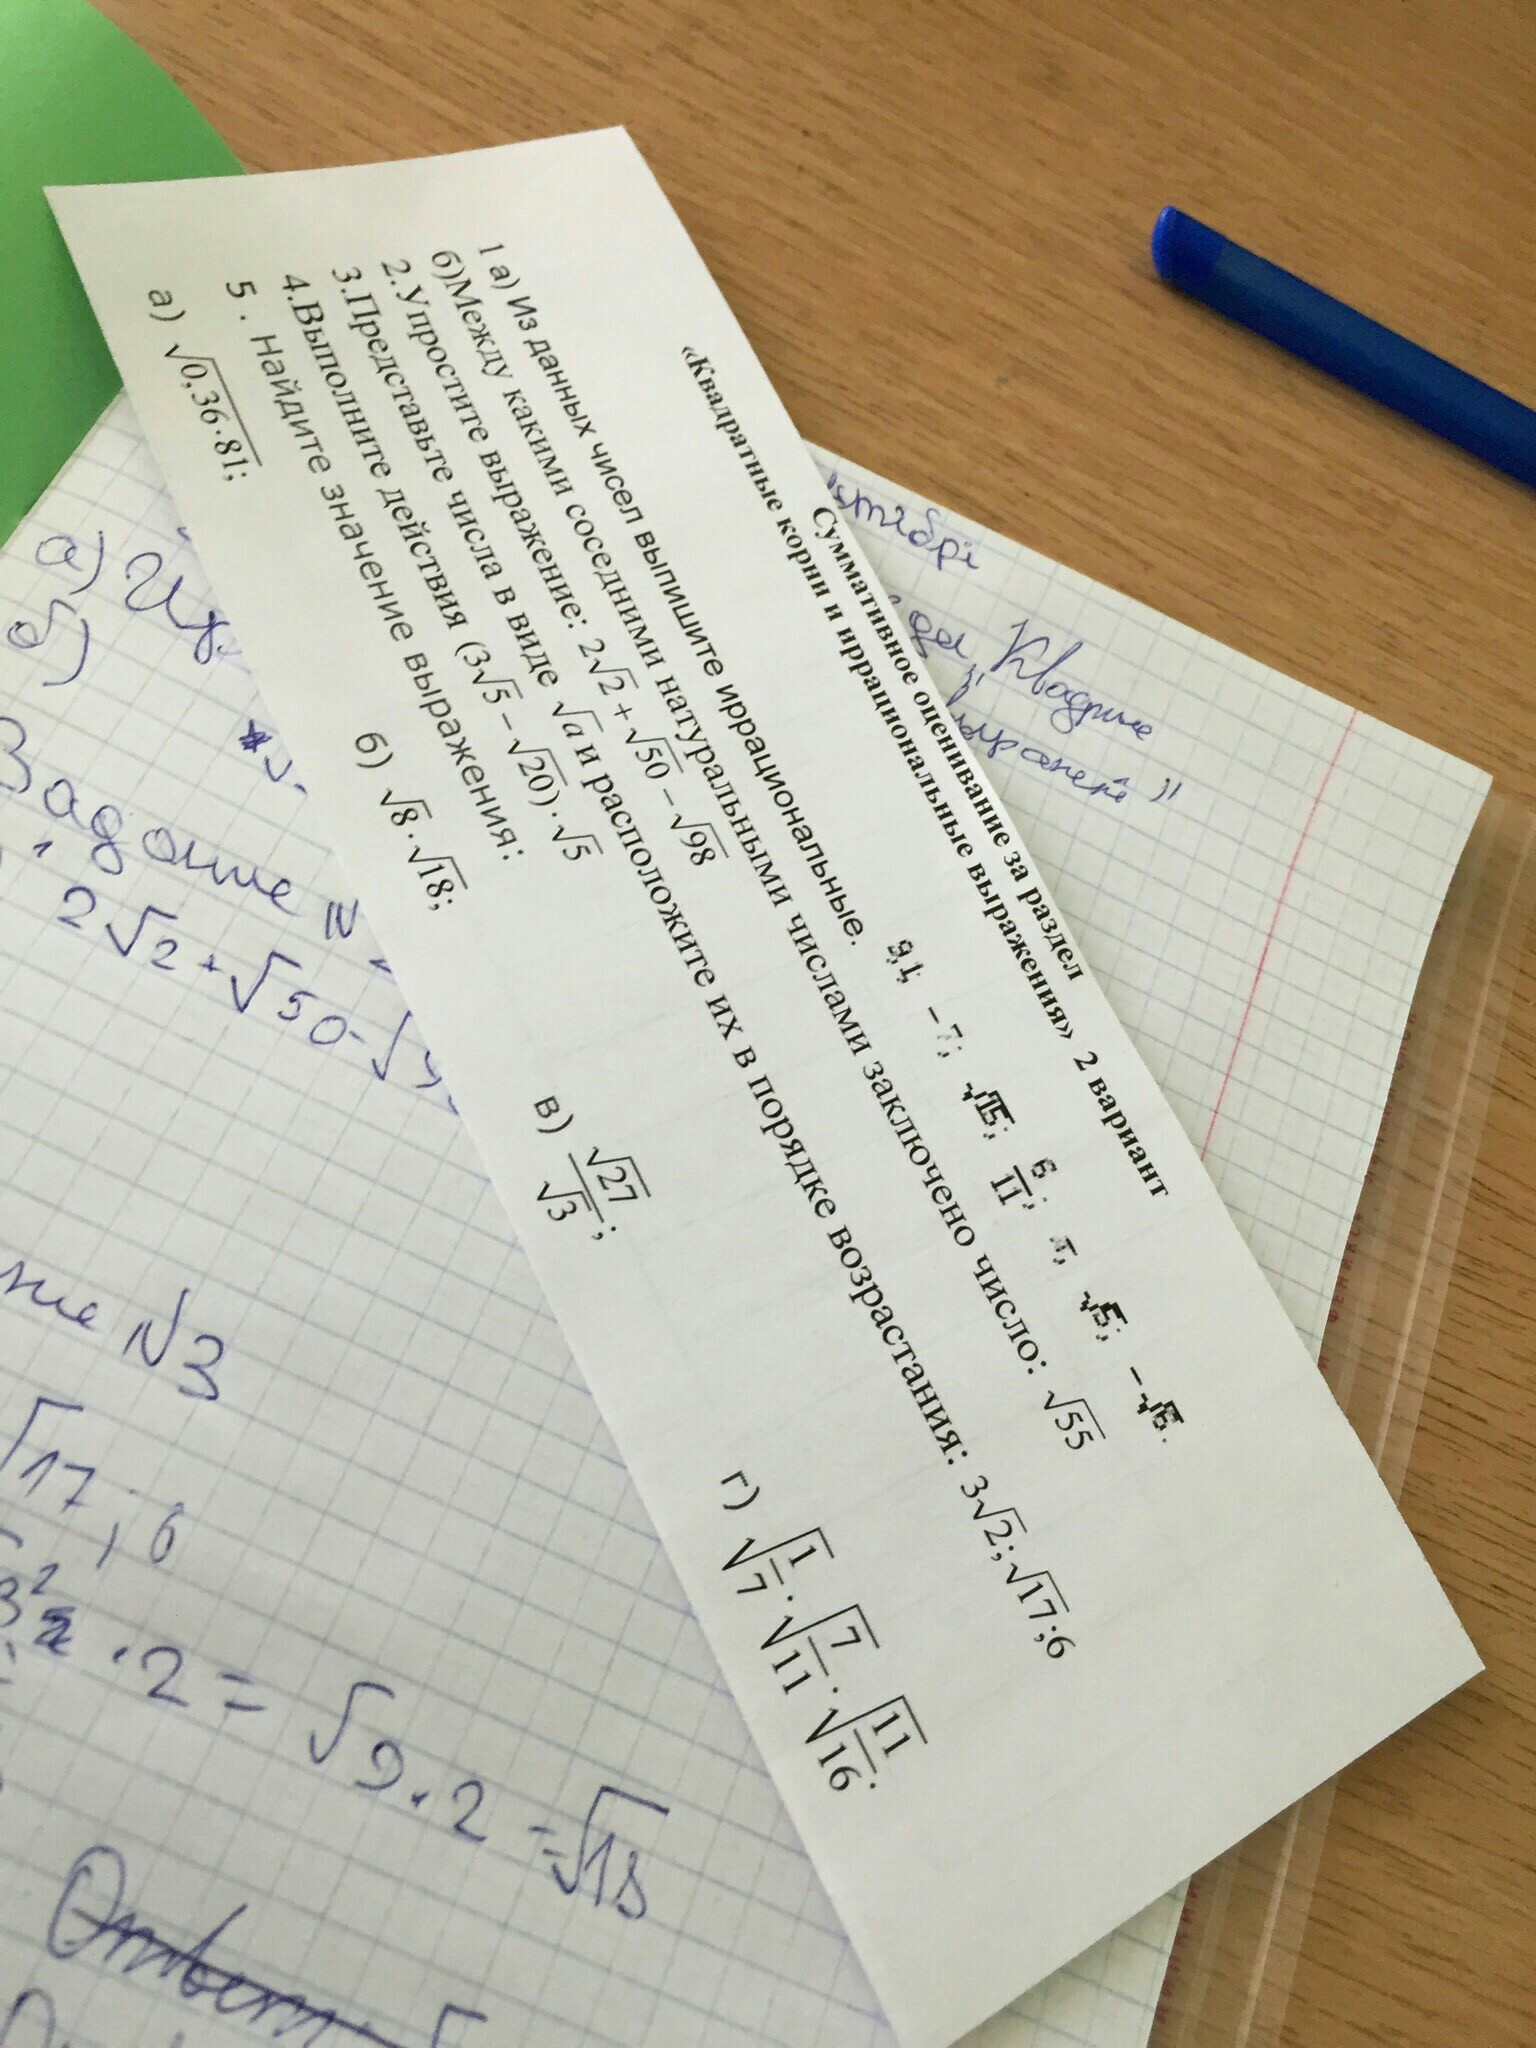 Суммативное оценивание за раздел
«Квадратные корни и иррациональные выражения» 2 вариант
1 а) Из данных чисел выпишите иррациональные. 9,1; −7; √15; 6/11; π; √5; −√6.
б)Между какими соседними натуральными числами заключено число: √55
2.Упростите выражение: 2√2 + √50 − √98
3.Представьте числа в виде √a и расположите их в порядке возрастания: 3√2; √17; 6
4.Выполните действия (3√5 − √20) · √5
5 . Найдите значение выражения:
а) √0,36·81; б) √8 · √18; в) √27/√3; г) √1/7 · √7/11 · √11/16.
а)
б)
2√2 + √50 - √
№3
√17; 6
· 2 = √9·2 = √18
Ответ